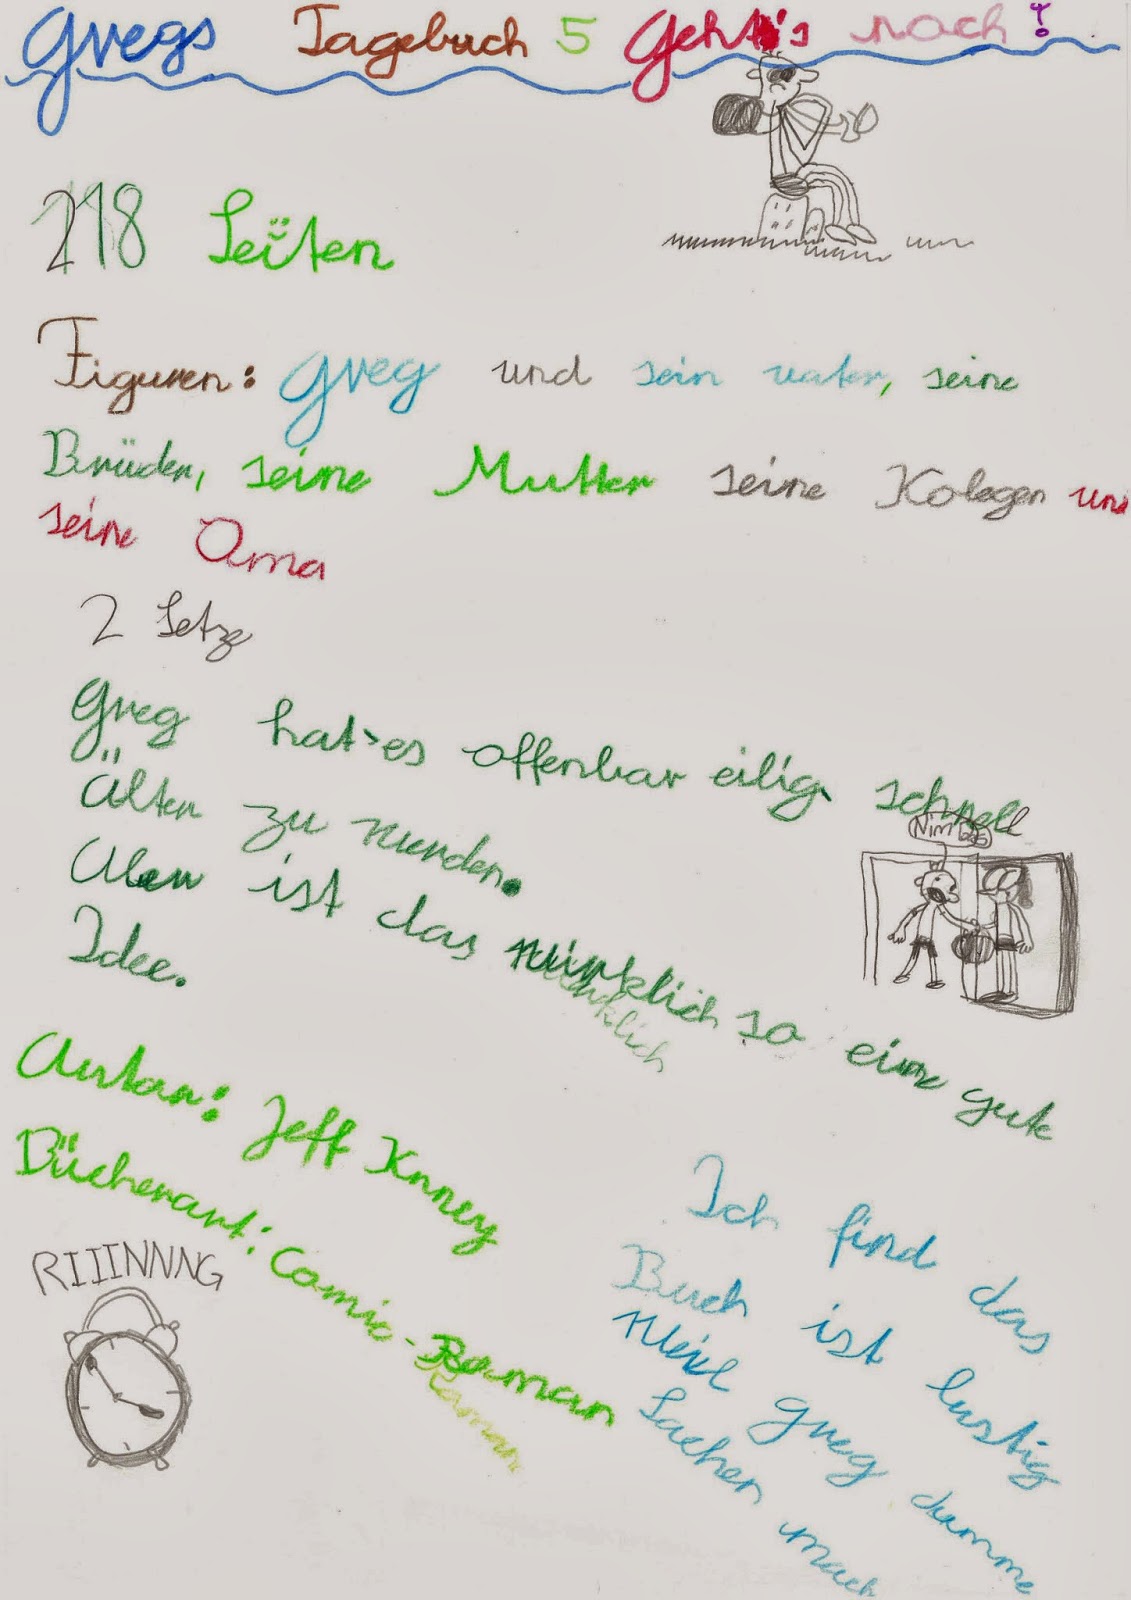 Gregs Tagebuch 5 Geht's noch?
218 Seiten
Figuren: Greg und sein vater, seine
Brüder, seine Mutter seine Kolegen und
seine Oma
2 Setze
Greg hat es offenbar eilig schnell
Älter zu werden.
Aber ist das wirklich so eine gute
wirklich
Idee.
Nimbas
Autor: Jeff Knney
Bücherart: Comic-Roman
Roman
RIIINNNG
Ich find das
Buch ist lustig
weil Greg dumme
Sachen mach